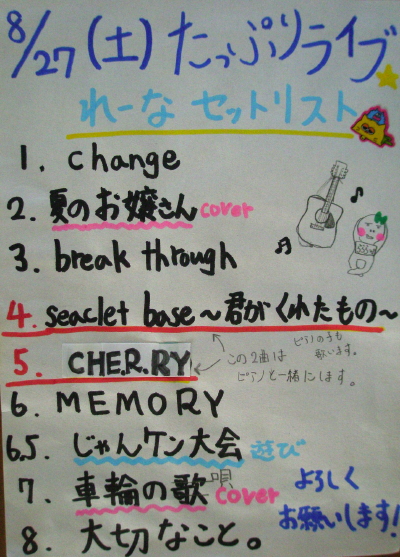 8/27(土)たっぷりライブ
れーな セットリスト
1. change
2. 夏のお嬢さん cover
3. break through
4. seaclet base～君がくれたもの～
ピアノの子も
歌います。
5. CHE.R.RY
この2曲は
ピアノと一緒にします。
6. MEMORY
6.5. じゃんケン大会 遊び
7. 車輪の歌 唄 cover
8. 大切なこと。
よろしく
お願いします!